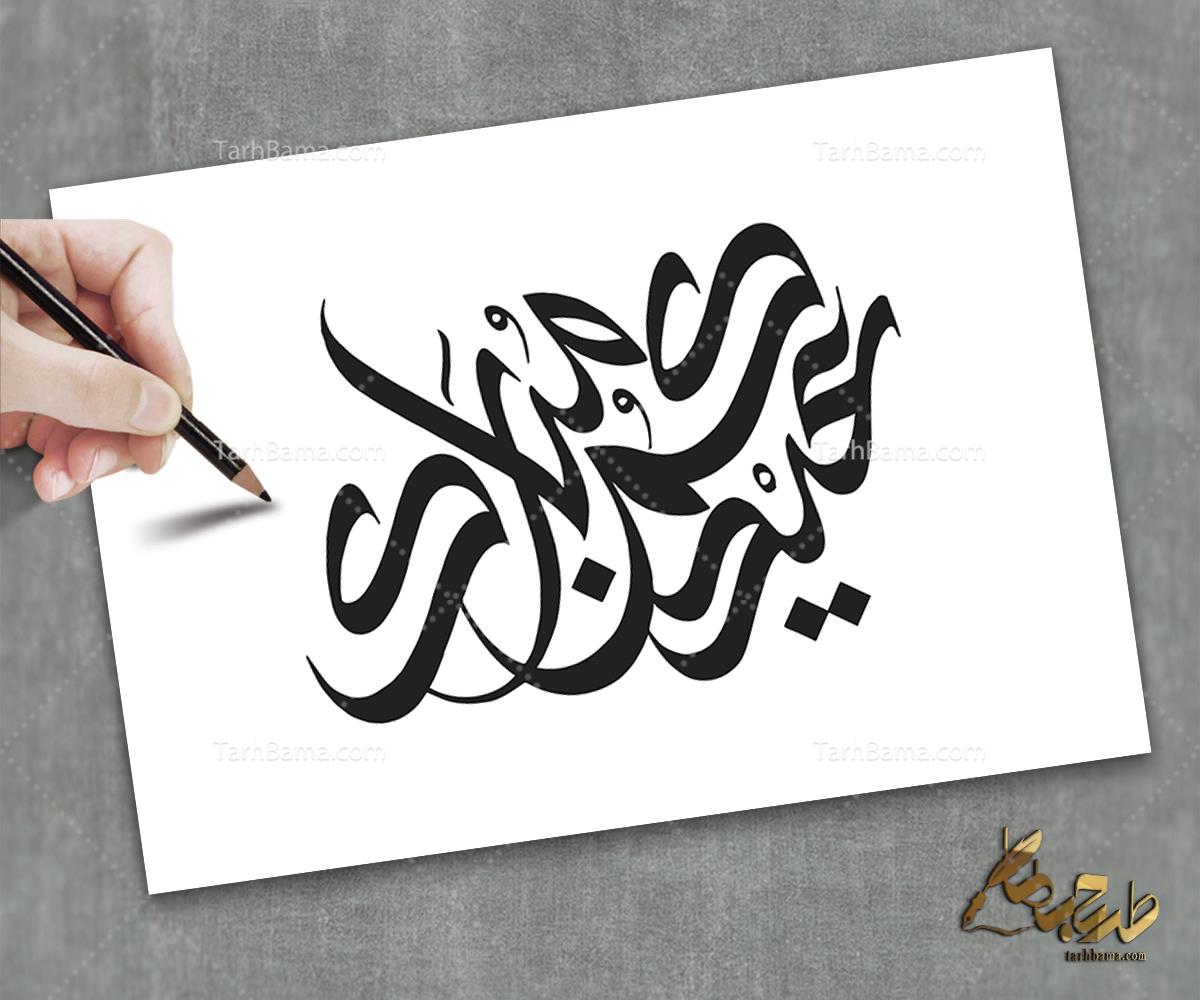 TarhBama.com TarhBama.com
عیدکم مبارک
TarhBama.com TarhBama.com
TarhBama.com TarhBama.com
طرح با ما
tarhbama.com